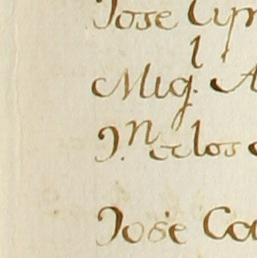 Jose Cyp
Migl. A
Jn. de los
José Co